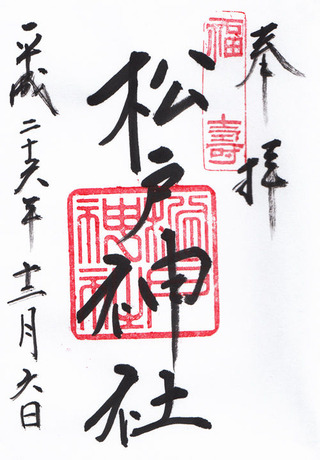 奉拝
福壽
松戸神社
松戸神社
平成二十六年十二月六日